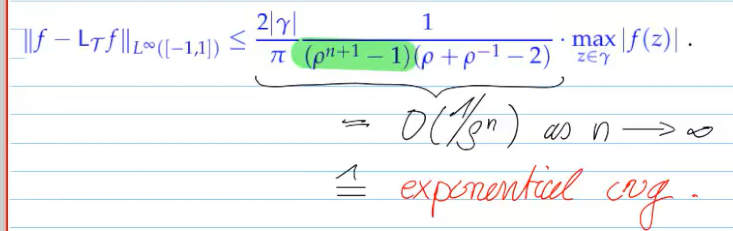 ‖f − L_𝒯 f‖_{L^∞([−1,1])} ≤ \frac{2|γ|}{π} \frac{1}{(ρ^{n+1} − 1)(ρ + ρ^{−1} − 2)} · \max_{z∈γ} |f(z)| .
= O(1/ρ^n) as n → ∞
≙ exponential cvg.